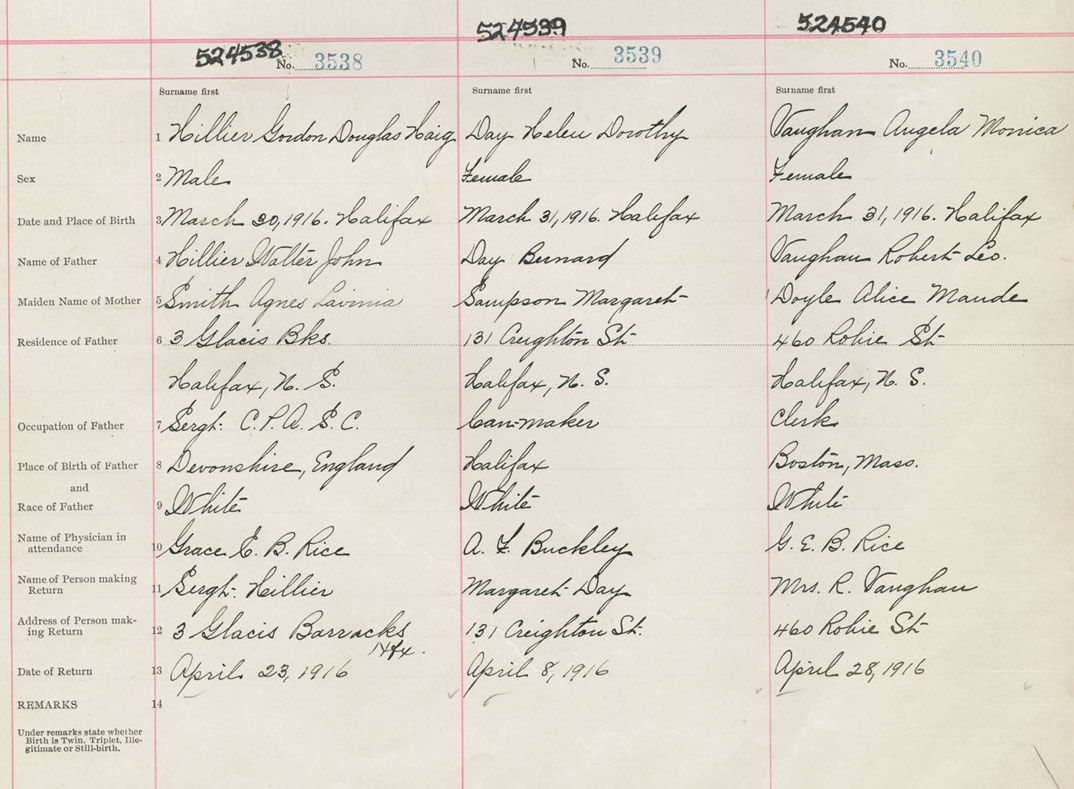 524538 524539 524540
No. 3538 No. 3539 No. 3540
Surname first Surname first Surname first
Name 1 Hillier Gordon Douglas Haig Day Helen Dorothy Vaughan Angela Monica
Sex 2 Male Female Female
Date and Place of Birth 3 March 30, 1916. Halifax March 31, 1916. Halifax March 31, 1916. Halifax
Name of Father 4 Hillier Walter John Day Bernard Vaughan Robert Leo.
Maiden Name of Mother 5 Smith Agnes Lavinia Sampson Margaret Doyle Alice Maude
Residence of Father 6 3 Glacis Bks. 131 Creighton St. 460 Robie St
Halifax, N. S. Halifax, N. S. Halifax, N. S.
Occupation of Father 7 Sergt. C. P. A. S. C. Can-maker Clerk
Place of Birth of Father 8 Devonshire, England Halifax Boston, Mass.
and
Race of Father 9 White White White
Name of Physician in attendance 10 Grace E. B. Rice A. F. Buckley G. E. B. Rice
Name of Person making Return 11 Sergt. Hillier Margaret Day Mrs. R. Vaughan
Address of Person mak-ing Return 12 3 Glacis Barracks 131 Creighton St. 460 Robie St
Hfx.
Date of Return 13 April 23, 1916 April 8, 1916 April 28, 1916
REMARKS 14
Under remarks state whether
Birth is Twin, Triplet, Ille-
gitimate or Still-birth.